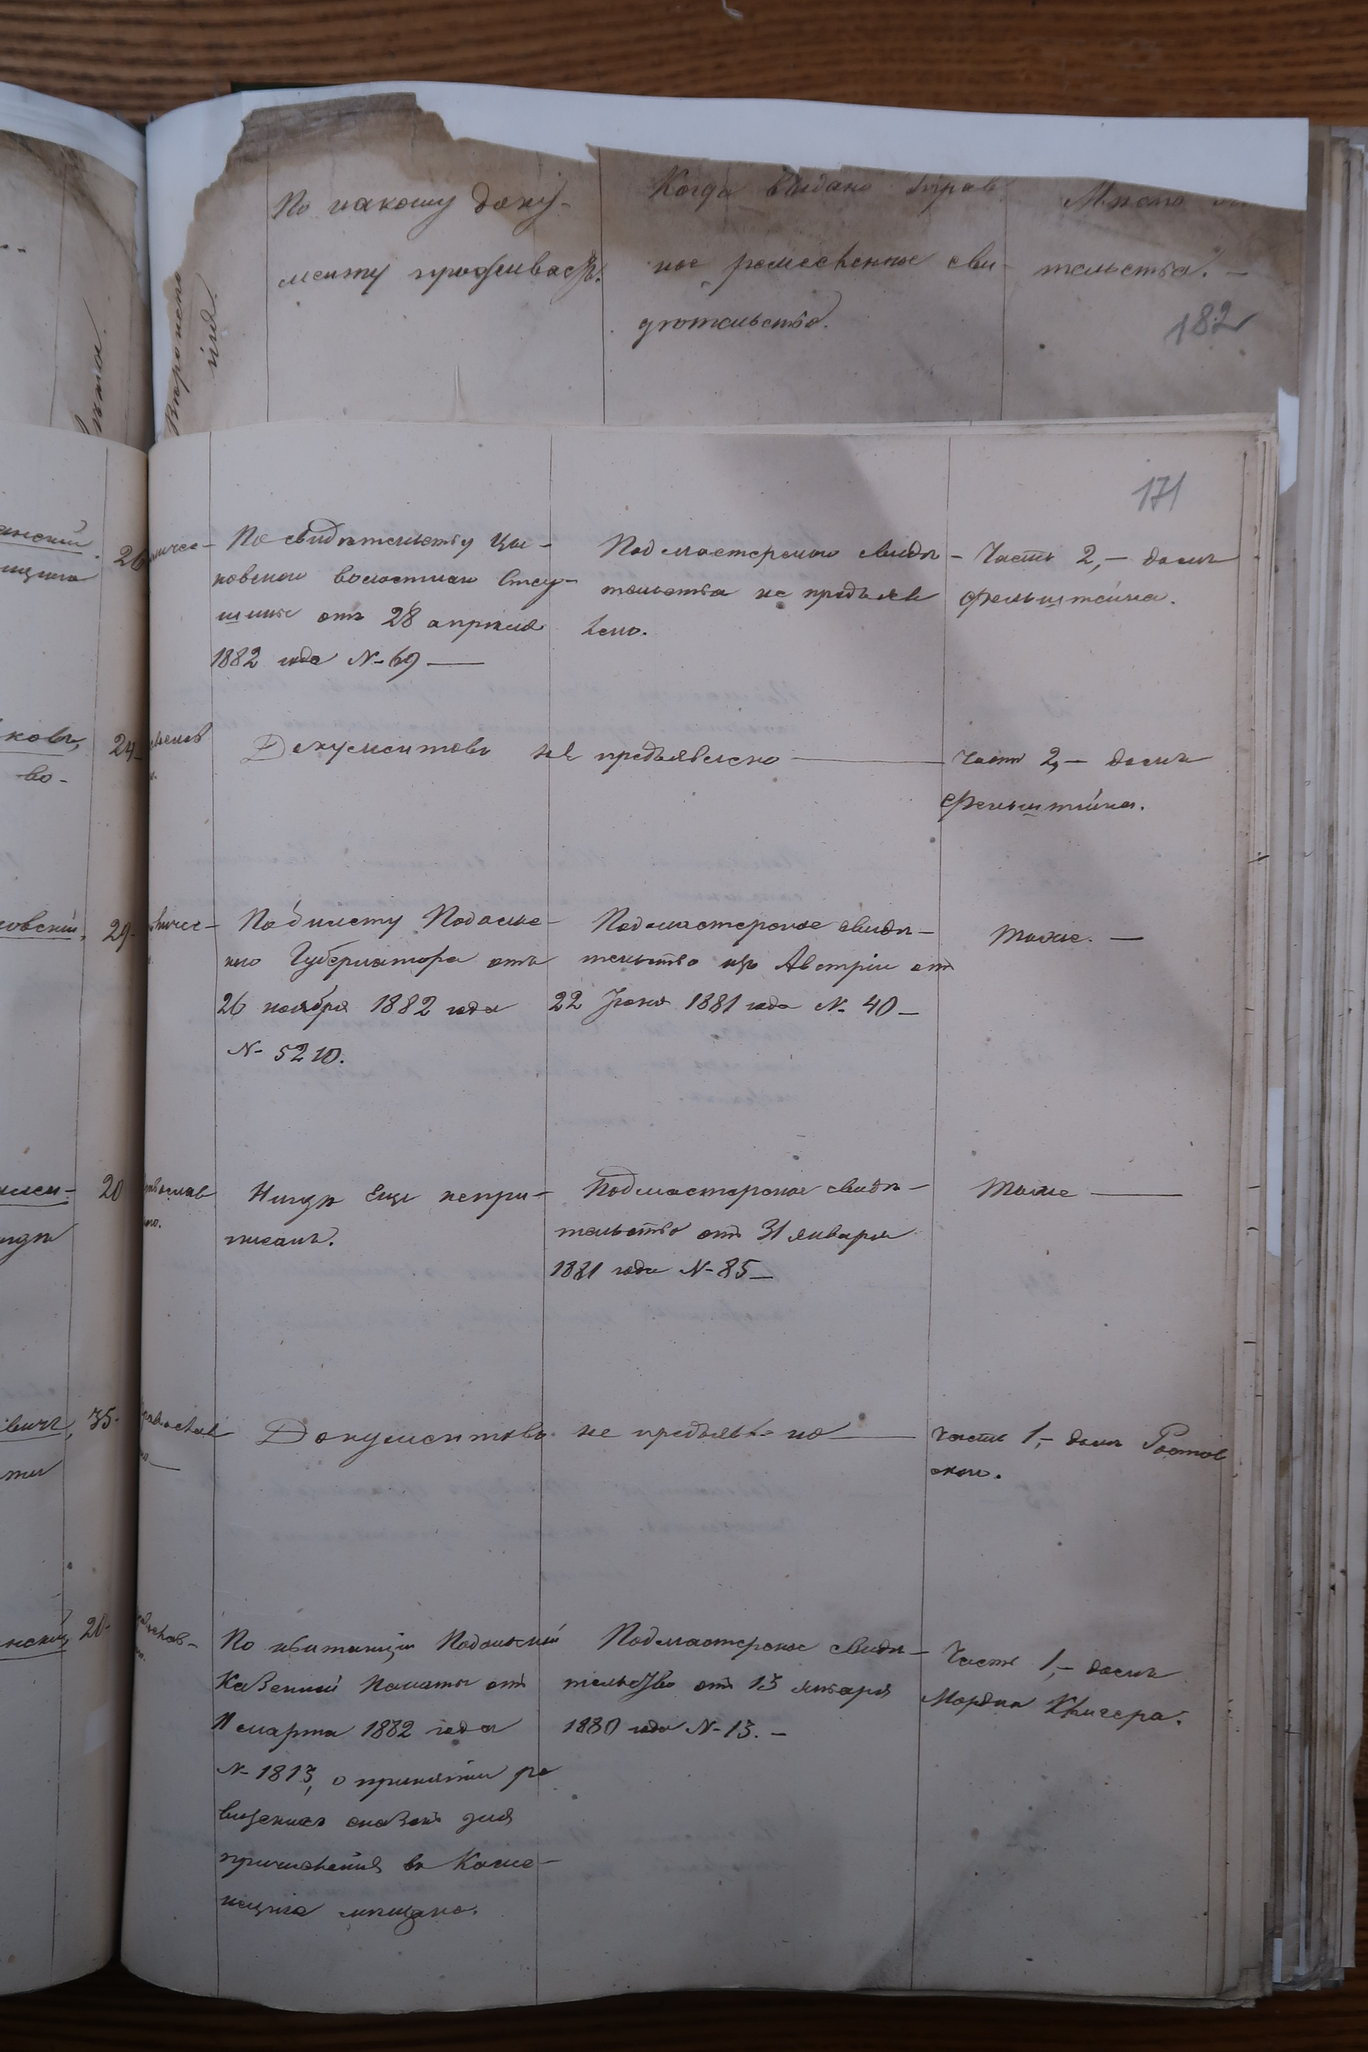 По какому доку-
менту проживаетъ.
Когда выдано управ
ное ремесленное сви-
дѣтельство.
Мѣсто
тельства. —
182
Вѣроиспо
171
26
По свидѣтельству
ковского волостного Стар-
шины отъ 28 апрѣля
1882 года № 69 —
Подмастерского свидѣ-
тельства не предъяв
лено.
Часть 2, — домъ
Фельштейна.
ковъ,
во-
24
Документовъ не предъявлено —
Часть 2, — домъ
Фельштейна.
ковскій,
29-
По билету Подоль-
ного Губернатора отъ
26 ноября 1882 года
№ 5210.
Подмастерское свидѣ-
тельство изъ Австріи отъ
22 Іюня 1881 года № 40 —
Тоже. —
20
православ
Нигдѣ еще непри-
писанъ.
Подмастерское свидѣ-
тельство отъ 31 января
1881 года № 85 —
Тоже —
евичъ,
35-
православ
Документовъ не предъявлено —
Часть 1, — домъ Ростов
ской.
нскій,
20-
православ-
По квитанціи Подольской
Казенной Палаты отъ
11 марта 1882 года
№ 1813, о принятіи ре
визскихъ сказокъ для
причисленія въ Каме-
нецкіе мѣщане.
Подмастерское свидѣ-
тельство отъ 13 января
1880 года № 13. —
Часть 1, — домъ
Мордка Кригера.